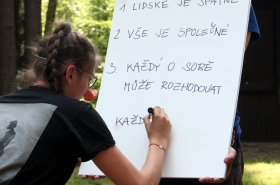 1. LIDSKÉ JE ŠPATNÉ
2. VŠE JE SPOLEČNÉ
3. KAŽDÝ O SOBĚ
MŮŽE ROZHODOVAT
KAŽD